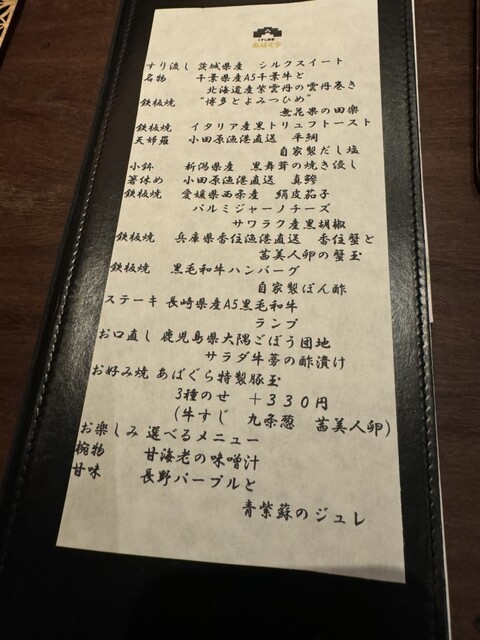 あばぐら
すり流し 茨城県産 シルクスイート
名物 千葉県産A5千葉牛と
北海道産紫雲丹の雲丹巻き
鉄板焼 "博多とよみつひめ"
無花果の田楽
鉄板焼 イタリア産黒トリュフトースト
天婦羅 小田原漁港直送 平鯛
自家製だし塩
小鉢 新潟県産 黒舞茸の焼き浸し
箸休め 小田原漁港直送 真鯵
鉄板焼 愛媛県西条産 絹皮茄子
パルミジャーノチーズ
サワラク産黒胡椒
鉄板焼 兵庫県香住漁港直送 香住蟹と
茜美人卵の蟹玉
鉄板焼 黒毛和牛ハンバーグ
自家製ぽん酢
ステーキ 長崎県産A5黒毛和牛
ランプ
お口直し 鹿児島県大隅ごぼう団地
サラダ牛蒡の酢漬け
お好み焼 あばぐら特製豚玉
3種のせ +330円
(牛すじ 九条葱 茜美人卵)
お楽しみ 選べるメニュー
椀物 甘海老の味噌汁
甘味 長野パープルと
青紫蘇のジュレ